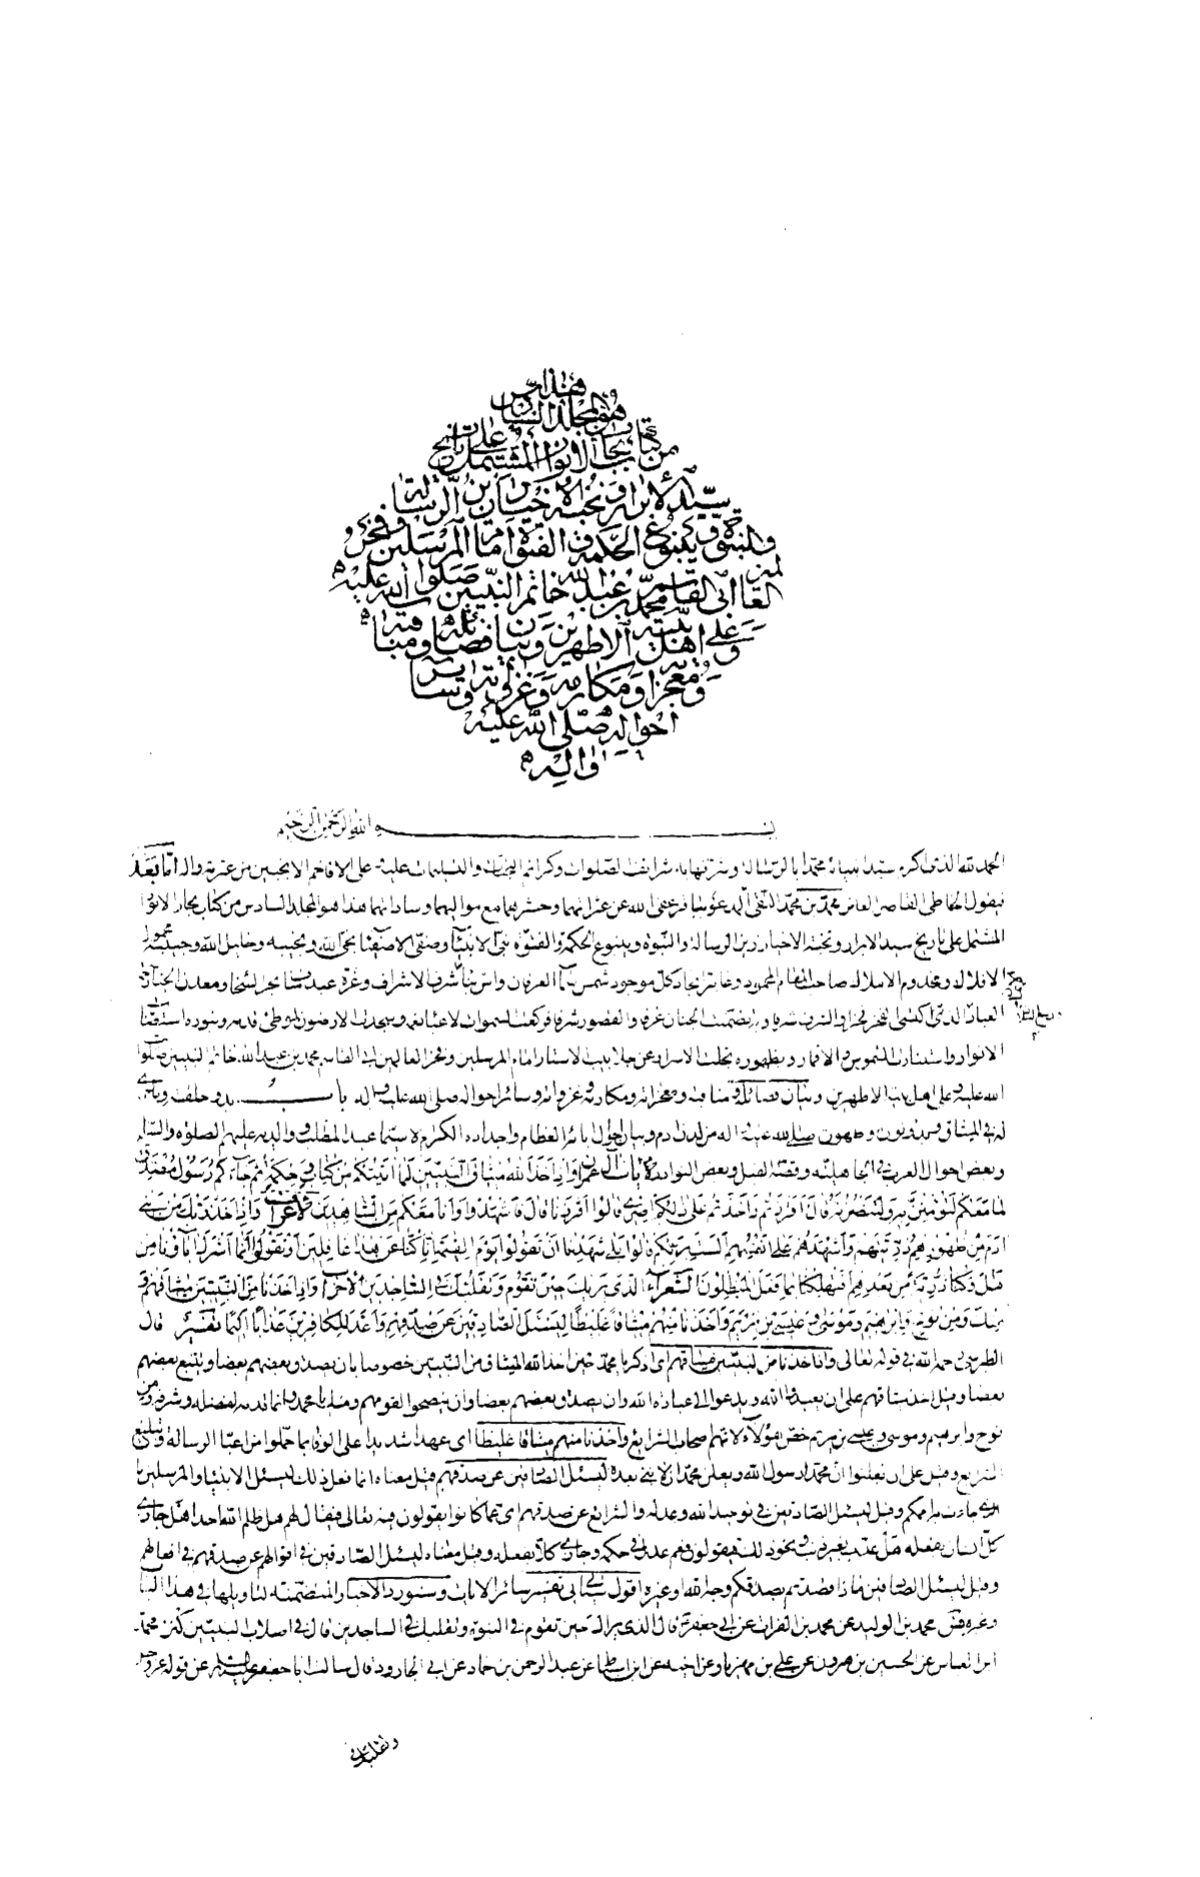 فهذا
هو المجلد السادس
من كتاب بحار الانوار المشتمل على تاريخ
سيد الابرار و نخبة الاخيار زين الرسالة
والنبوة و ينبوع الحكمة و الفتوة امام المرسلين و فخر
العالمين ابي القاسم محمد بن عبد الله خاتم النبيين صلوات الله عليه
و على اهل بيته الاطهرين و بيان فضائله و مناقبه
و معجزاته و مكارمه و غزواته و سائر
احواله صلى الله عليه
و اله
بسم الله الرحمن الرحيم
الحمد لله الذى اكرم سيد انبيائه محمدا بالرسالة و شرفها به شرائف الصلوات و كرائم التحيات و التسليمات عليه و على الافاخم الانجبين من عترته و اله اما بعد
فيقول الخاطى القاصر العاثر محمد بن محمد التقى المدعو بباقر عفى الله عن عثراتهما و حشرهما مع مواليهما و ساداتهما هذا هو المجلد السادس من كتاب بحار الانوار
المشتمل على تاريخ سيد الابرار و نخبة الاخيار زين الرسالة و النبوة و ينبوع الحكمة و الفتوة نبى الانبياء و صفى الاصفياء نجى الله و نجيبه و خليل الله و حبيبه محمول
الافلاك و مخدوم الاملاك صاحب المقام المحمود و غاية ايجاد كل موجود شمس سماء العرفان و اس بناء الايمان شرف الاشراف و غرة عبد مناف بحر السخاء و معدن الحياء
العباد الذى اكتسى الفخر فخرا به و الشرف شرفا و به تضمنت الجنان غرفا و القصور شرفا فركعت السموات لاعباء نعمه و سجدت الارضون لموطئ قدمه و بنوره استضاءت
الانوار و استنارت الشموس و الاقمار و بظهوره تجلت الاسرار عن جلابيب الاستار امام المرسلين و فخر العالمين ابي القاسم محمد بن عبد الله خاتم النبيين صلوات
الله عليه و على اهل بيته الاطهرين و بيان فضائله و مناقبه و معجزاته و مكارمه و غزواته و سائر احواله صلى الله عليه و اله باب بدو خلقه و ما جرى
له فى الميثاق و بدو نوره و ظهوره صلى الله عليه و اله من لدن ادم و بيان احوال ابائه العظام و اجداده الكرام لا سيما عبد المطلب و والديه عليهم الصلوة و السلام
و بعض احوال العرب فى الجاهلية و قصة الفيل و بعض النوادر الايات ال عمران و اذ اخذ الله ميثاق النبيين لما اتيتكم من كتاب و حكمة ثم جاءكم رسول مصدق
لما معكم لتؤمنن به و لتنصرنه قال ءاقررتم و اخذتم على ذلكم اصرى قالوا اقررنا قال فاشهدوا و انا معكم من الشاهدين الاعراف و اذ اخذ ربك من بنى
ادم من ظهورهم ذريتهم و اشهدهم على انفسهم الست بربكم قالوا بلى شهدنا ان تقولوا يوم القيمة انا كنا عن هذا غافلين او تقولوا انما اشرك اباؤنا من
قبل و كنا ذرية من بعدهم افتهلكنا بما فعل المبطلون الشعراء الذى يريك حين تقوم و تقلبك فى الساجدين الاحزاب و اذ اخذنا من النبيين ميثاقهم
و منك و من نوح و ابرهيم و موسى و عيسى بن مريم و اخذنا منهم ميثاقا غليظا ليسئل الصادقين عن صدقهم و اعد للكافرين عذابا اليما تفسير قال
الطبرسى رحمه الله فى قوله تعالى و اذ اخذنا من النبيين ميثاقهم اى و اذكر يا محمد حين اخذ الله الميثاق من النبيين خصوصا بان يصدق بعضهم بعضا و يتبع بعضهم
بعضا و قيل اخذ ميثاقهم على ان يعبدوا الله و يدعوا الى عبادة الله و ان يصدق بعضهم بعضا و ان ينصحوا لقومهم و منك يا محمد و انما قدمه لفضله و شرفه و من
نوح و ابرهيم و موسى و عيسى بن مريم خص هؤلاء لانهم اصحاب الشرايع و اخذنا منهم ميثاقا غليظا اى عهدا شديدا على الوفاء بما حملوا من اعباء الرسالة و تبليغ
الشرايع و قيل على ان يعلنوا ان محمدا رسول الله و يعلن محمد ان لا نبى بعده ليسئل الصادقين عن صدقهم قيل معناه انما فعل ذلك ليسئل الانبياء و المرسلين ما
الذى جاءت به اممكم و قيل ليسئل الصادقين فى توحيد الله و عدله و الشرائع عن صدقهم اى عما كانوا يقولون فيه تعالى فيقال لهم هل ظلم الله احدا هل جازى
كل انسان بفعله هل عذب بغير ذنب و نحو ذلك فيقولون نعم عدل فى حكمه و جازى كلا بفعله و قيل معناه ليسئل الصادقين فى اقوالهم عن صدقهم فى افعالهم
و قيل ليسئل الصادقين ماذا قصدتم بصدقكم وجه الله او غيره اقول سيأتى تفسير سائر الايات و سنورد الاخبار المتضمنة لتاويلها فى هذا الباب
و غيره فس محمد بن الوليد عن محمد بن الفرات عن ابى جعفر قال الذى يريك حين تقوم فى النبوة و تقلبك فى الساجدين قال فى اصلاب النبيين كنز محمد
ابن العباس عن الحسين بن هرون عن على بن مهزيار عن اخيه عن ابن اسباط عن عبد الرحمن بن حماد عن ابى الجارود قال سالت ابا جعفر عليه السلام عن قوله عز و جل
و تقلبك فى